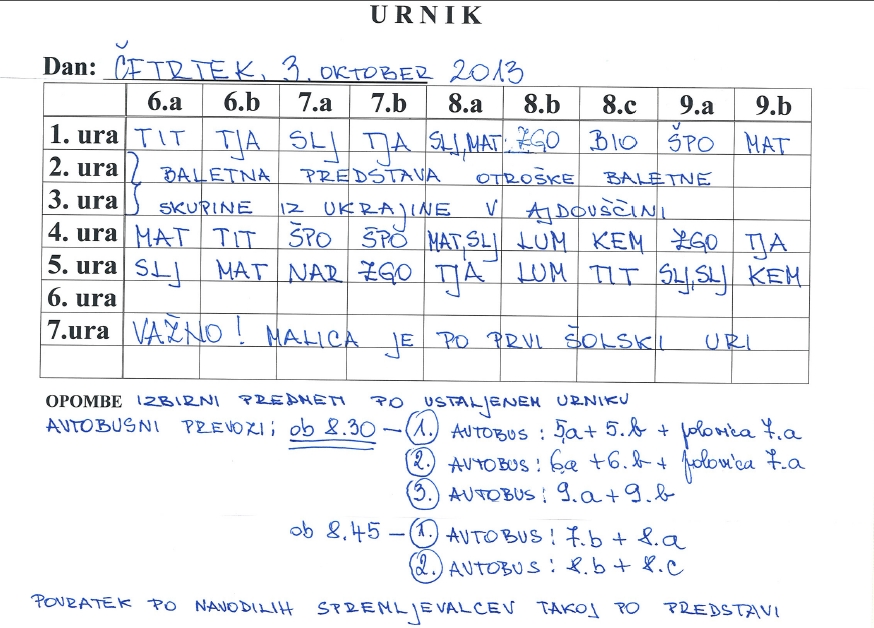 URNIK
Dan: ČETRTEK, 3. OKTOBER 2013
6.a 6.b 7.a 7.b 8.a 8.b 8.c 9.a 9.b
1. ura TIT TJA SLJ TJA SLJ,MAT ZGO BIO ŠPO MAT
2. ura } BALETNA PREDSTAVA OTROŠKE BALETNE
3. ura { SKUPINE IZ UKRAJINE V AJDOVŠČINI
4. ura MAT TIT ŠPO ŠPO MAT,SLJ LUM KEM ZGO TJA
5. ura SLJ MAT NAR ZGO TJA LUM TIT SLJ,SLJ KEM
6. ura
7.ura VAŽNO! MALICA JE PO PRVI ŠOLSKI URI
OPOMBE IZBIRNI PREDMETI PO USTALJENEM URNIKU
AVTOBUSNI PREVOZI; ob 8.30 – 1. AVTOBUS: 5a + 5.b + polovica 7.a
2. AVTOBUS: 6a + 6.b + polovica 7.a
3. AVTOBUS: 9.a + 9.b
ob 8.45 – 1. AVTOBUS: 7.b + 8.a
2. AVTOBUS: 8.b + 8.c
POVRATEK PO NAVODILIH SPREMLJEVALCEV TAKOJ PO PREDSTAVI